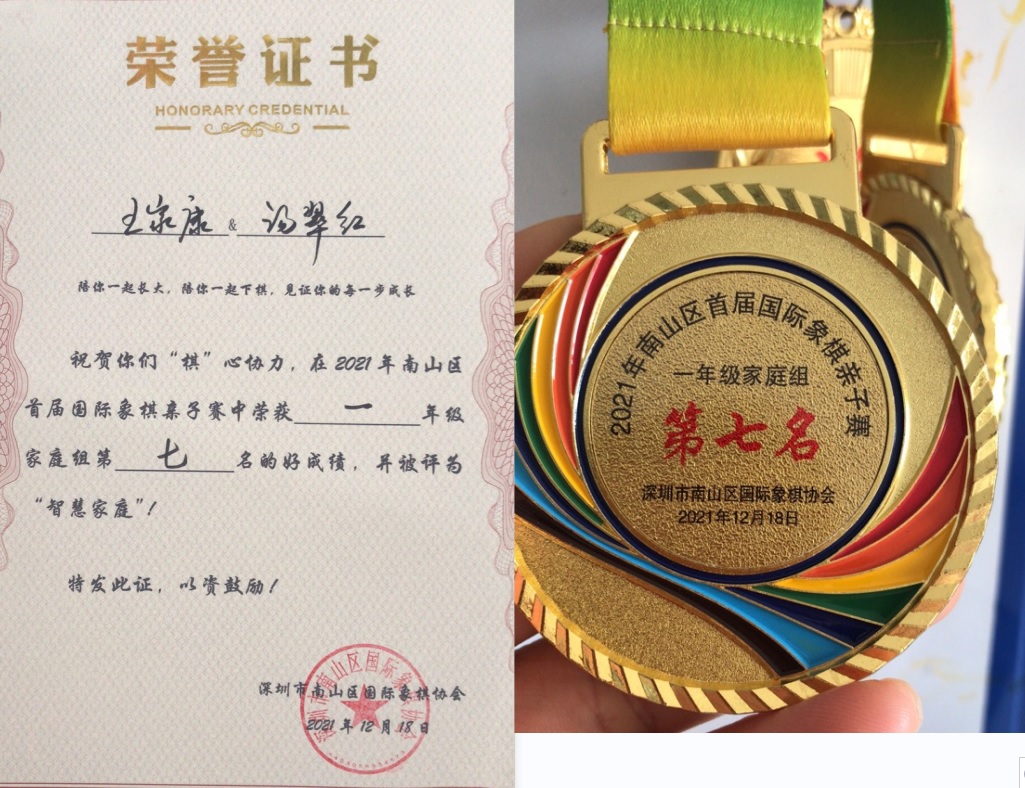 荣誉证书
HONORARY CREDENTIAL
王家康 & 汤翠红
陪你一起长大，陪你一起下棋，见证你的每一步成长
祝贺你们“棋”心协力，在2021年南山区
首届国际象棋亲子赛中荣获一年级
家庭组第七名的好成绩，并被评为
“智慧家庭”！
特发此证，以资鼓励！
深圳市南山区国际象棋协会
2021年12月18日
深圳市南山区国际象棋协会
2021年南山区首届国际象棋亲子赛
一年级家庭组
第七名
深圳市南山区国际象棋协会
2021年12月18日